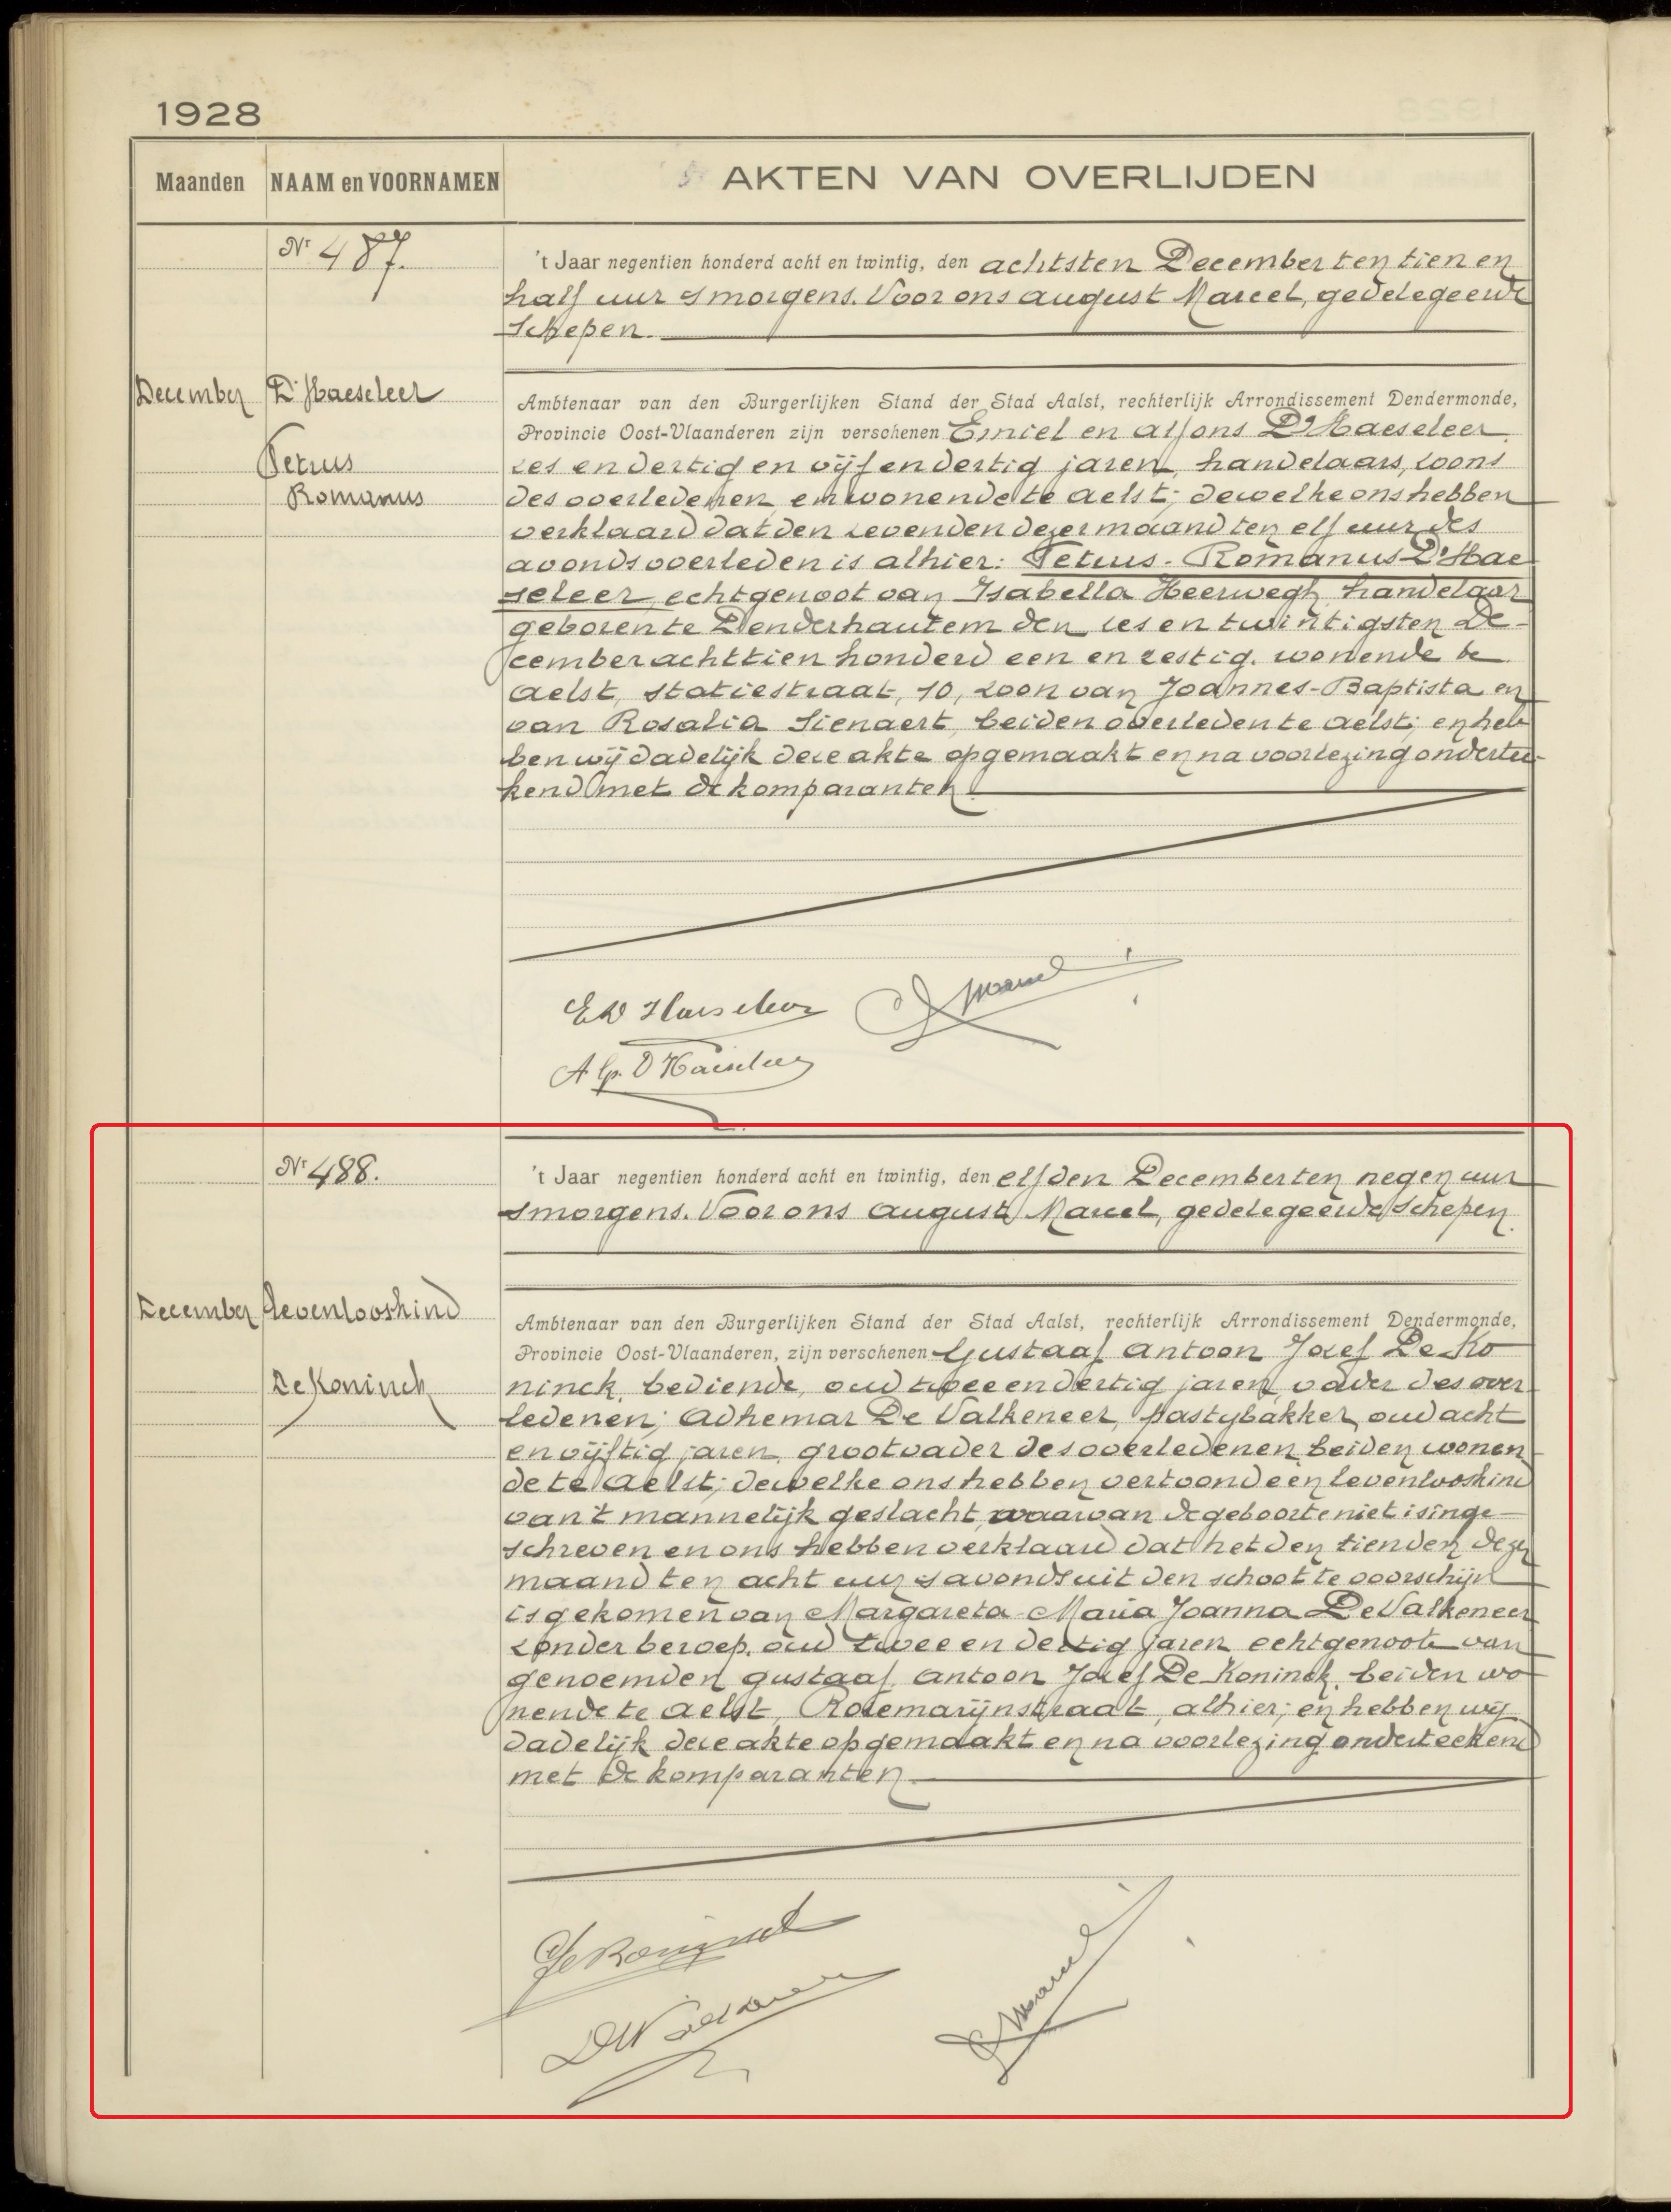 1928
Maanden NAAM en VOORNAMEN AKTEN VAN OVERLIJDEN
Nr 487.
't Jaar negentien honderd acht en twintig, den achtsten December ten tien en
half uur smorgens. Voor ons August Marcel, gedelegeerde
Schepen.
December D'Haeseleer
Petrus
Romanus
Ambtenaar van den Burgerlijken Stand der Stad Aalst, rechterlijk Arrondissement Dendermonde,
Provincie Oost-Vlaanderen zijn verschenen Emiel en Alfons D'Haeseleer
zes en dertig en vijf en dertig jaren, handelaars, zoons
des overledenen, en wonende te Aelst; dewelke ons hebben
verklaard dat den zevenden dezer maand ten elf uur des
avonds overleden is alhier: Petrus-Romanus D'Hae
seleer, echtgenoot van Isabella Heerwegh, handelaar
geboren te Denderhautem den zes en twintigsten De-
cember achttien honderd een en zestig. wonende te
Aelst, Statiestraat, 10, zoon van Joannes-Baptista en
van Rosalia Sienaert, beiden overleden te Aelst; en heb
ben wij dadelijk deze akte opgemaakt en na voorlezing ondertee-
kend met de komparanten.
E D'Haeseleer Marcel
Alf. D'Haeseleer
Nr 488.
't Jaar negentien honderd acht en twintig, den elfden December ten negen uur
smorgens. Voor ons August Marcel, gedelegeerde Schepen.
December Levenlooskind
De Koninck
Ambtenaar van den Burgerlijken Stand der Stad Aalst, rechterlijk Arrondissement Dendermonde,
Provincie Oost-Vlaanderen, zijn verschenen Gustaaf Antoon Josef De Ko
ninck, bediende, oud twee en dertig jaren, vader des over
ledenen; Adhemar De Valkeneer, pastybakker, oud acht
en vijftig jaren, grootvader des overledenen, beiden wonen
de te Aelst; dewelke ons hebben vertoond een levenlooskind
van 't mannelijk geslacht, waarvan de geboorte niet is inge-
schreven en ons hebben verklaard dat het den tienden dezer
maand ten acht uur savonds uit den schoot te voorschijn
is gekomen van Margareta-Maria Joanna De Valkeneer
zonder beroep, oud twee en dertig jaren, echtgenoote van
genoemden Gustaaf Antoon Josef De Koninck, beiden wo
nende te Aelst, Rozemarijnstraat, alhier; en hebben wij
dadelijk deze akte opgemaakt en na voorlezing onderteekend
met de komparanten.
De Koninck
Marcel